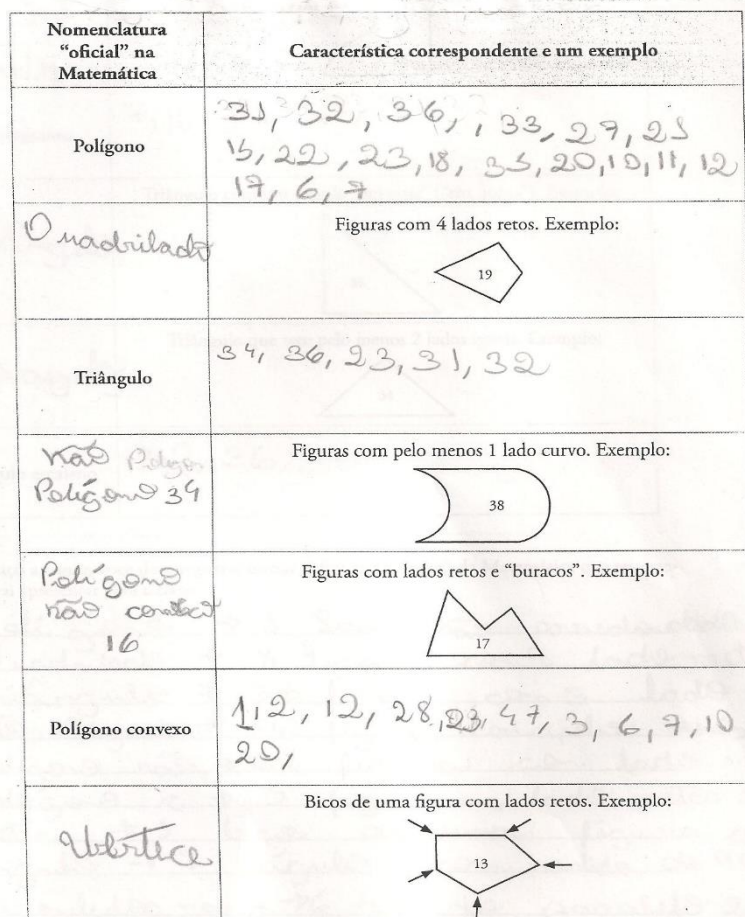 Nomenclatura
“oficial” na
Matemática
Característica correspondente e um exemplo
Polígono
31, 32, 36, , 33, 27, 21
15, 22, 23, 18, 35, 20, 10, 11, 12
17, 6, 7
Quadrilado
Figuras com 4 lados retos. Exemplo:
19
Triângulo
34, 36, 23, 31, 32
Não
Polígono 34
Figuras com pelo menos 1 lado curvo. Exemplo:
38
Polígono
não
16
Figuras com lados retos e “buracos”. Exemplo:
17
Polígono convexo
1, 2, 12, 28, 23, 47, 3, 6, 7, 10
20,
Bicos de uma figura com lados retos. Exemplo:
13